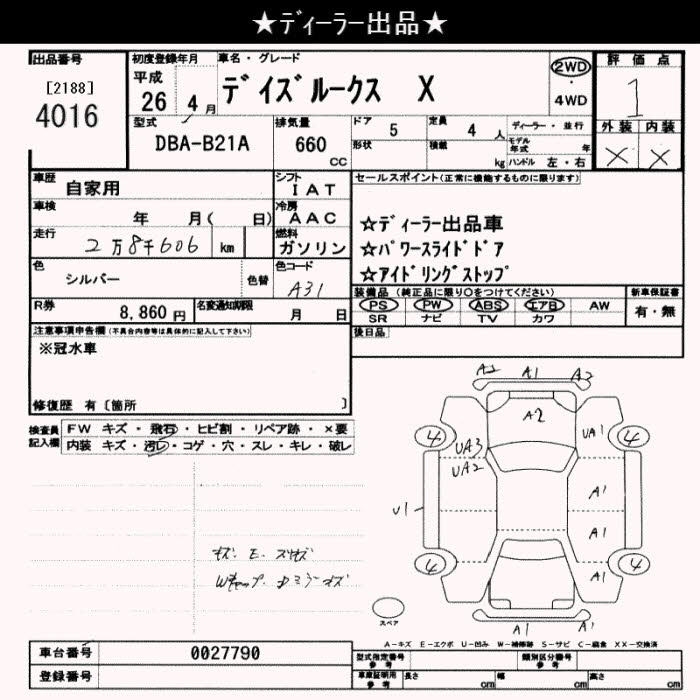 ★ディーラー出品★
出品番号
[2188]
4016
初度登録年月
平成
26 4月
車名・グレード
デイズルークス X
2WD
・
4WD
評価点
1
外装 内装
× ×
型式
DBA-B21A
排気量
660
CC
ドア 5
定員 4人
ディーラー・並行
形状
積載 kg
モデル年式 年
ハンドル 左・右
車歴 自家用
シフト
IAT
車検 年 月( 日)
冷房
AAC
走行 2万8千606 km
燃料
ガソリン
セールスポイント(正常に機能するものに限ります)
☆ディーラー出品車
☆パワースライドドア
☆アイドリングストップ
色
シルバー
色替
色コード
A31
装備品(純正品に限り○をつけてください)
PS PW ABS エアB AW
SR ナビ TV カワ
新車保証書
有・無
R券 8,860円
名変通知期限 月 日
後日品
注意事項申告欄(不具合内容等は具体的に記入して下さい)
※冠水車
修復歴 有〔箇所 〕
検査員記入欄
FW キズ・飛石・ヒビ割・リペア跡・×要
内装 キズ・汚レ・コゲ・穴・スレ・キレ・破レ
A2 A1 A2
A2
4 4
UA3 UA1
UA2
A1
U1
A1
4 A1 4
A1 A1
スペア
A-キズ E-エクボ U-凹み W-補修跡 S-サビ C-腐食 XX-交換済
車台番号 0027790
登録番号
型式指定番号 参考
類別区分番号 参考
車庫証明用 参考
長さ cm
幅 cm
高さ cm